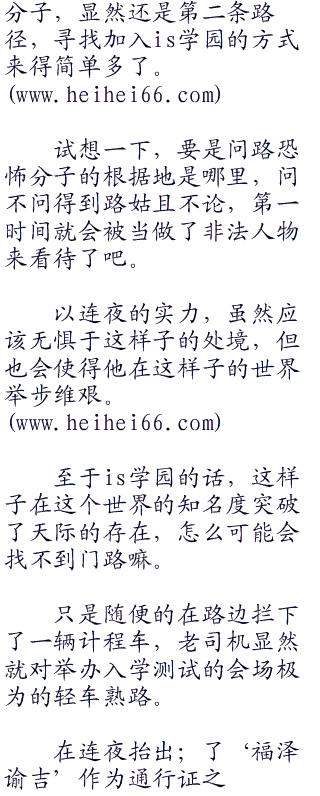 分子，显然还是第二条路
径，寻找加入is学园的方式
来得简单多了。
(www.heihei66.com)
试想一下，要是问路恐
怖分子的根据地是哪里，问
不问得到路姑且不论，第一
时间就会被当做了非法人物
来看待了吧。
以连夜的实力，虽然应
该无惧于这样子的处境，但
也会使得他在这样子的世界
举步维艰。
(www.heihei66.com)
至于is学园的话，这样
子在这个世界的知名度突破
了天际的存在，怎么可能会
找不到门路嘛。
只是随便的在路边拦下
了一辆计程车，老司机显然
就对举办入学测试的会场极
为的轻车熟路。
在连夜抬出；了‘福泽
谕吉’作为通行证之